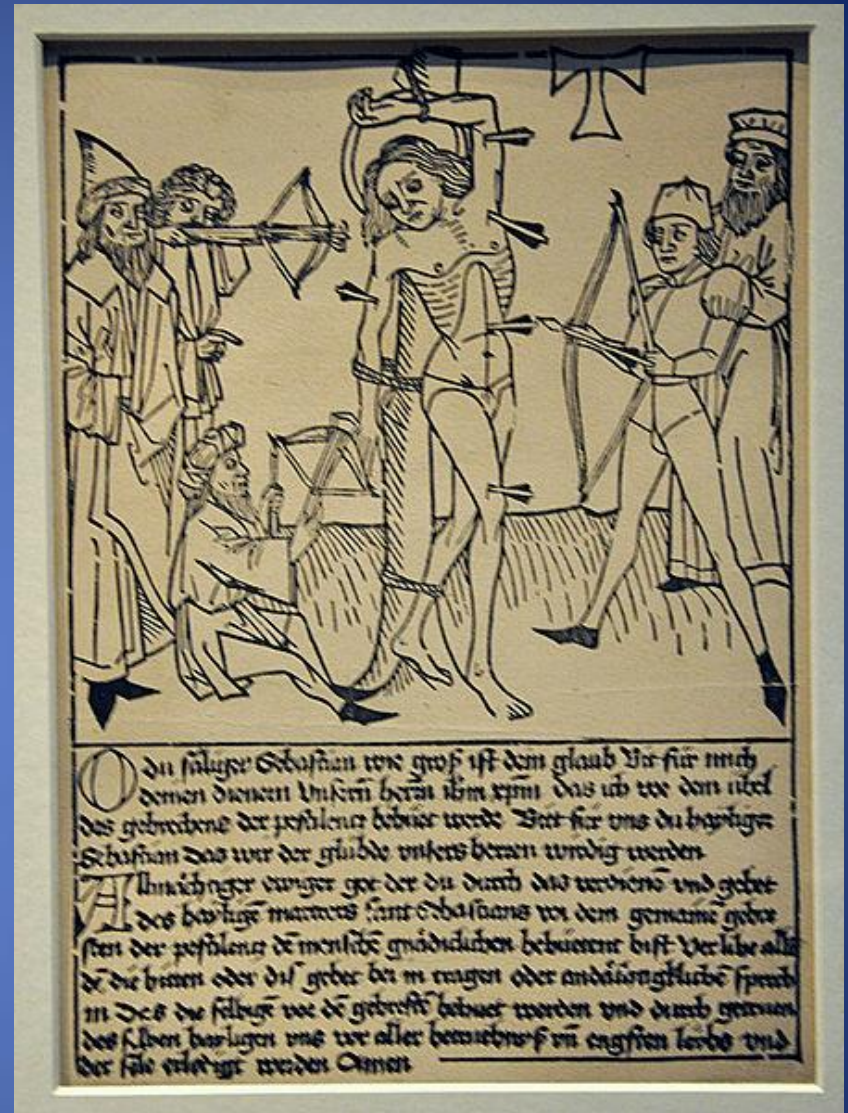 O du säliger Sebastian wie groß ist dein glaub Bit für mich
deinen dienern Unsern herrn ihm xpm das ich vor dem übel
des gebrechens der pestilentz behüet werde Bitt für uns du hayliger
Sebastian das wir der glübde unsers herren wirdig werden
Almächtiger ewiger got der du durch das verdiene vnd gebet
des haylige martrers sant Sebastians vor dem gemaine gebre
sten der pestilentz de mensche gnädiclichen bist Verlihe alle
de die bitten oder diß gebet bei in tragen oder andächtigkliche sprech
in Das die selbige vor de gebreste behuet werden vnd durch
des selben hayligen vns vor aller betruebnuß vn engsten leibs vnd
der sele erlediget werden Amen